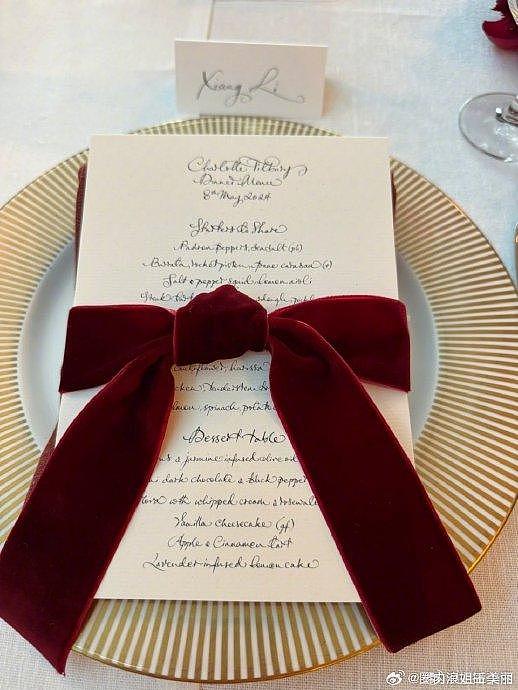 Xiang Li
Charlotte Tilbury
Dinner Menu
8th May 2024
Starters to Share
Padron peppers, sea salt (pb)
Burrata, rocket pesto, pane carasau (v)
Salt & pepper squid, lemon aioli
Steak
cauliflower, harissa
tenderstem
salmon, spinach, potato
Dessert table
& jasmine infused olive oil
dark chocolate & black pepper
with whipped cream &
Vanilla Cheesecake (gf)
Apple & Cinnamon tart
Lavender infused lemon cake